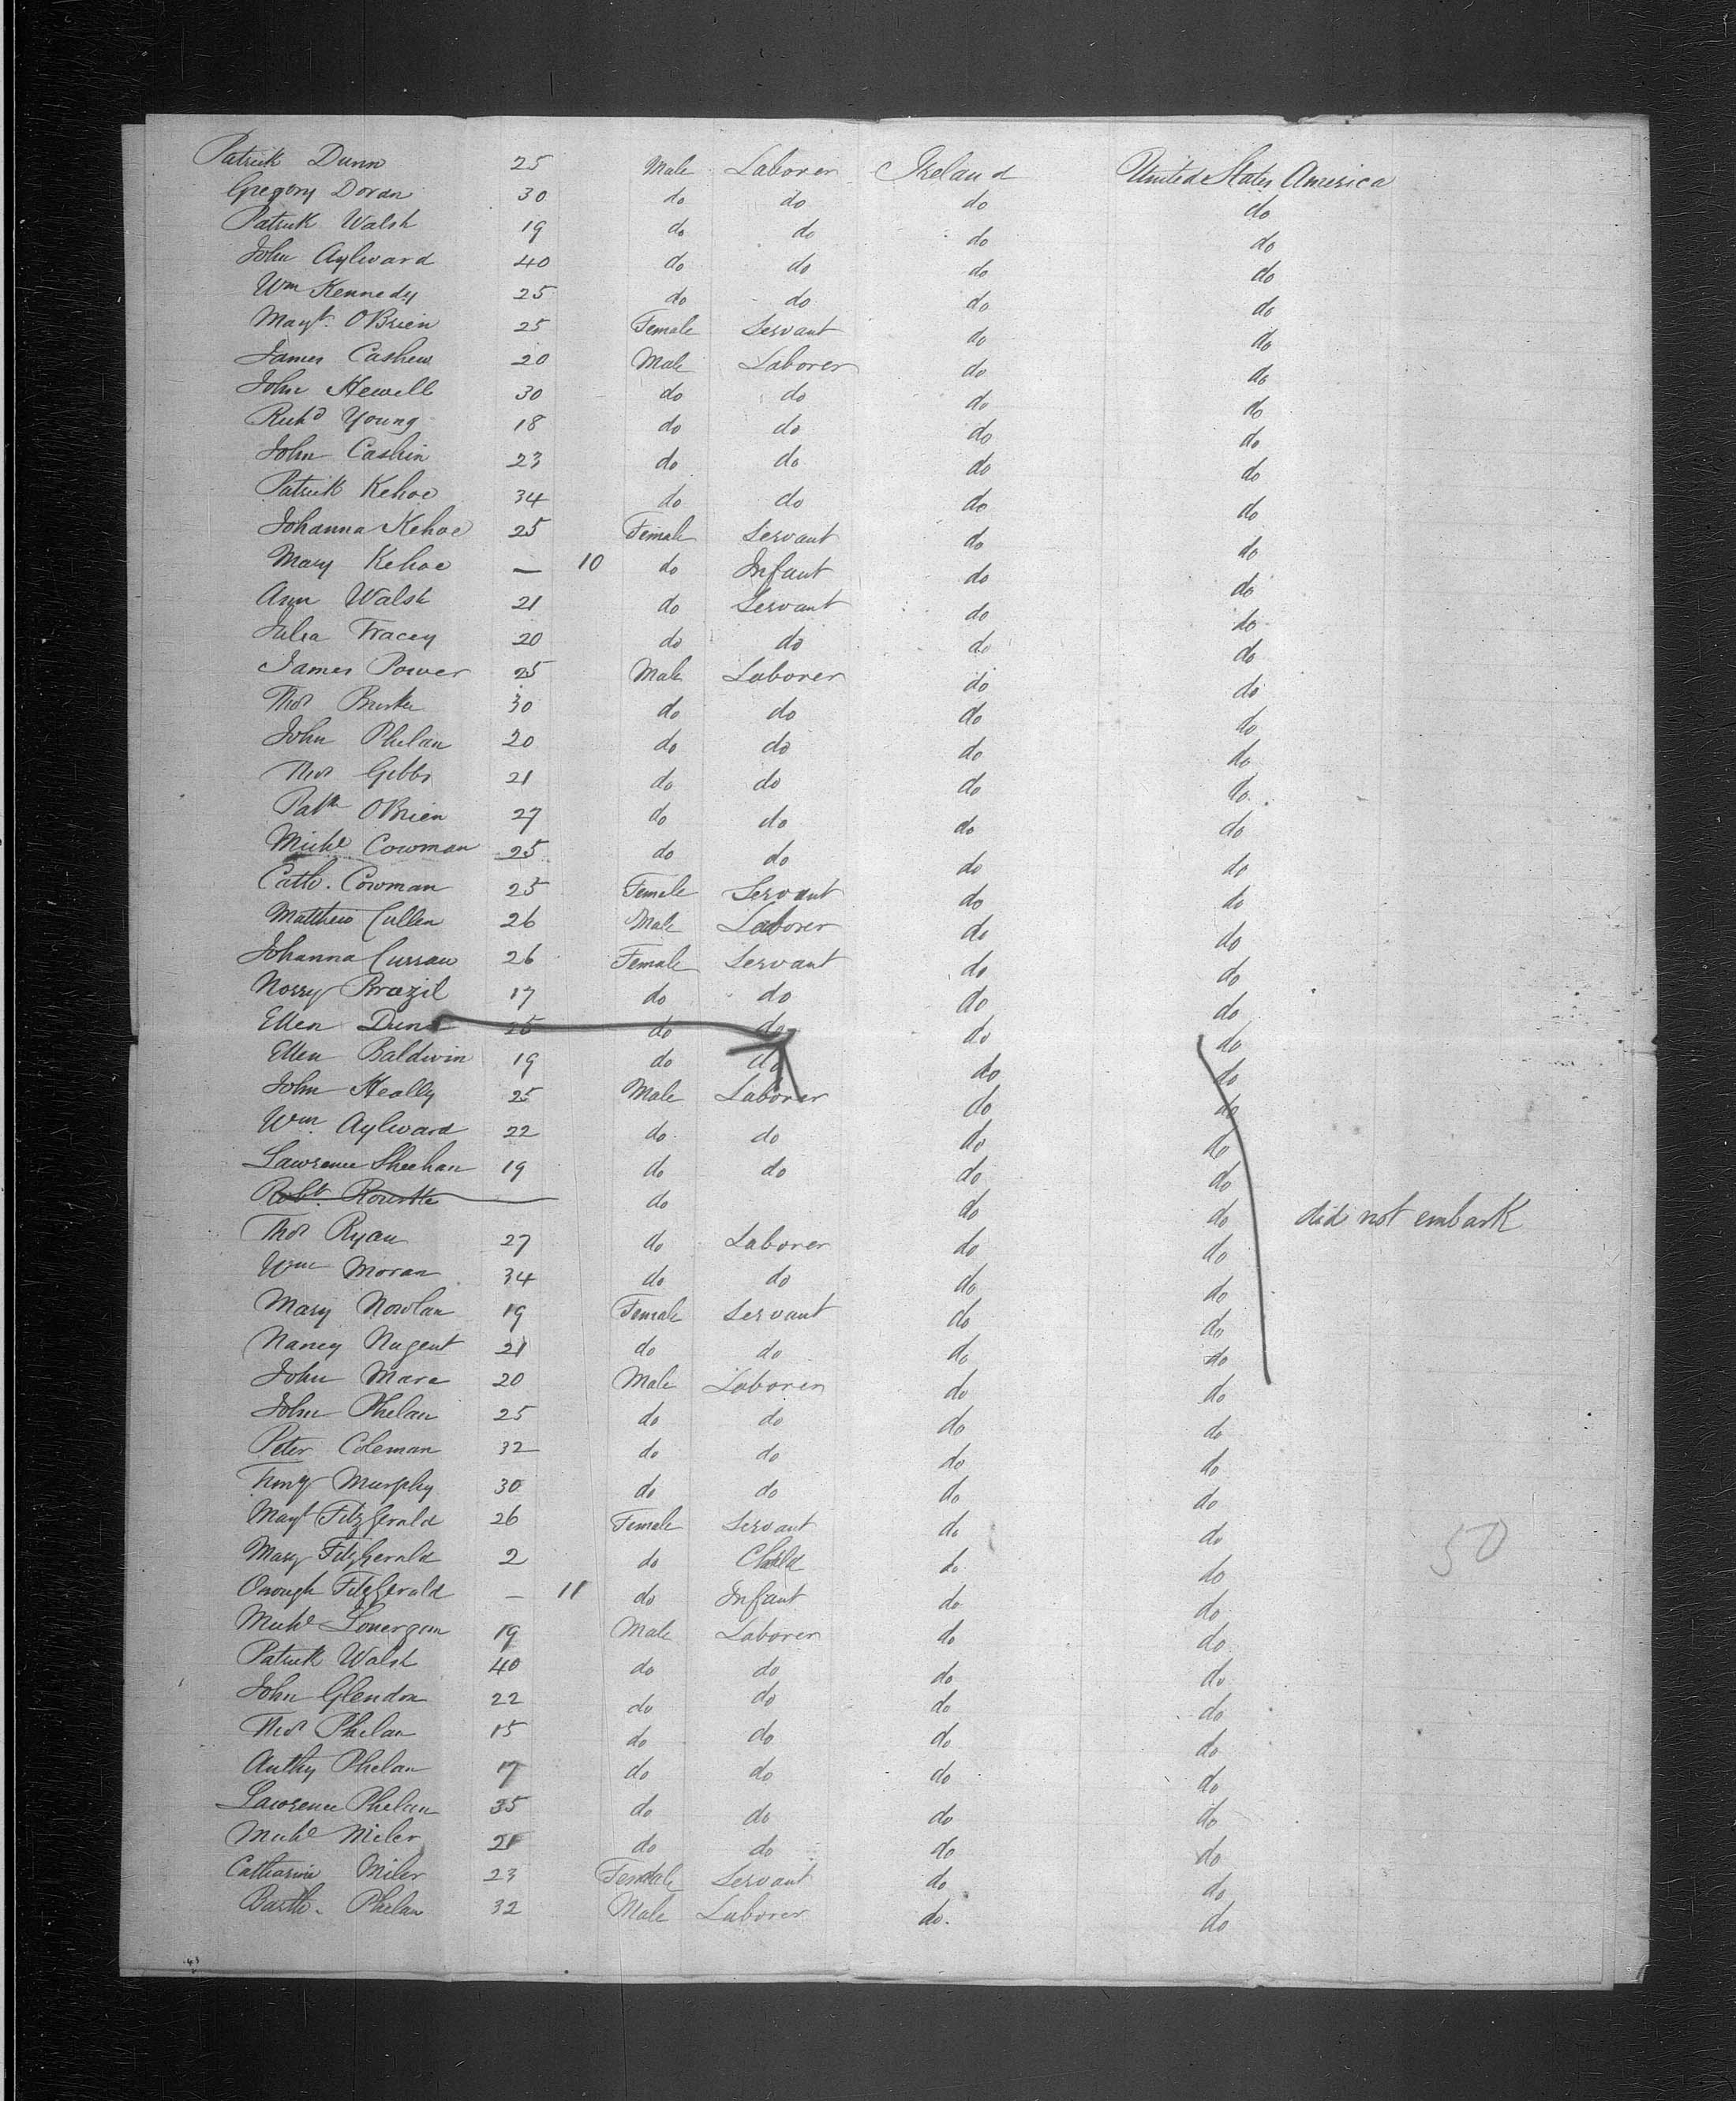 Patrick Dunn 25 Male Laborer Ireland United States America
Gregory Doran 30 do do do do
Patrick Walsh 19 do do do do
John Aylward 40 do do do do
Wm Kennedy 25 do do do do
Magt. OBrien 25 Female Servant do do
James Cashew 20 Male Laborer do do
John Hewell 30 do do do do
Richd Young 18 do do do do
John Cashin 23 do do do do
Patrick Kehoe 34 do do do do
Johanna Kehoe 25 Female Servant do do
Mary Kehoe — 10 do Infant do do
Ann Walsh 21 do Servant do do
Julia Tracey 20 do do do do
James Power 25 Male Laborer do do
Thos Burke 30 do do do do
John Phelan 20 do do do do
Thos Gibbs 21 do do do do
Patk OBrien 27 do do do do
Michl Cowman 25 do do do do
Cath. Cowman 25 Female Servant do do
Matthew Cullen 26 Male Laborer do do
Johanna Curran 26 Female Servant do do
Norry Brazil 17 do do do do
Ellen Dunn 25 do do do do
Ellen Baldwin 19 do do do do
John Heally 25 Male Laborer do do
Wm. Aylward 22 do do do do
Lawrence Sheehan 19 do do do do
Robt. Rourke do do do did not embark
Thos Ryan 27 do Laborer do do
Wm Moran 34 do do do do
Mary Nowlan 19 Female Servant do do
Nancy Nugent 21 do do do do
John Mara 20 Male Laborer do do
John Phelan 25 do do do do
Peter Coleman 32 do do do do
Timy Murphy 30 do do do do
Magt FitzGerald 26 Female Servant do do
Mary FitzGerald 2 do Child do do 50
Onough FitzGerald — 11 do Infant do do
Michl Lonergan 19 Male Laborer do do
Patrick Walsh 40 do do do do
John Glendon 22 do do do do
Thos Phelan 15 do do do do
Anthy Phelan 17 do do do do
Lawrence Phelan 35 do do do do
Michl Miler 21 do do do do
Catharine Miler 23 Female Servant do do
Barth. Phelan 32 Male Laborer do. do